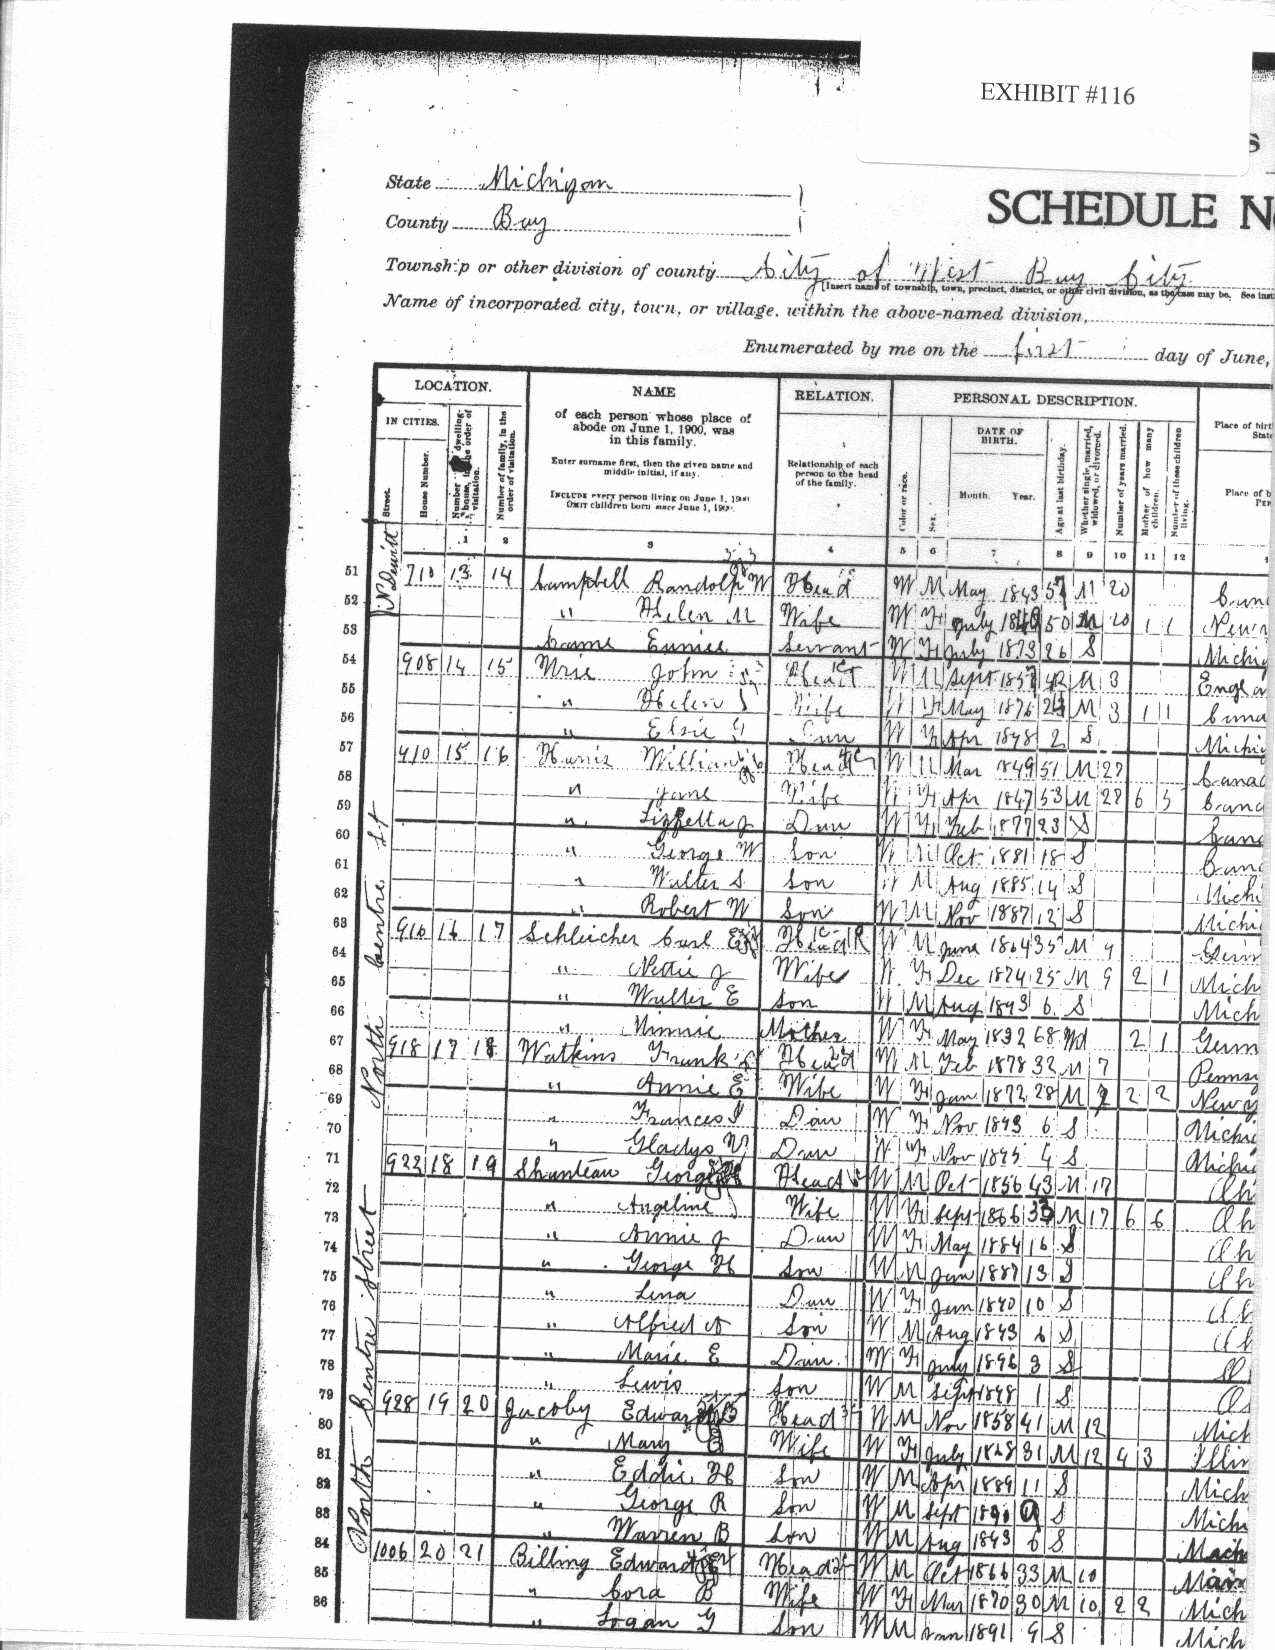 EXHIBIT #116
S
State Michigan
County Bay
SCHEDULE No
Township or other division of county City of West Bay City
[Insert name of township, town, precinct, district, or other civil division, as the case may be. See inst
Name of incorporated city, town, or village, within the above-named division,
Enumerated by me on the first day of June,
LOCATION. NAME RELATION. PERSONAL DESCRIPTION.
IN CITIES. of each person whose place of abode on June 1, 1900, was in this family.
Enter surname first, then the given name and middle initial, if any.
INCLUDE every person living on June 1, 1900.
OMIT children born since June 1, 1900.
Relationship of each person to the head of the family.
Street. House Number. Number of family, in the order of visitation.
Color or race. Sex. DATE OF BIRTH. Month. Year. Age at last birthday. Whether single, married, widowed, or divorced. Number of years married. Mother of how many children. Number of these children living.
1 2 3 4 5 6 7 8 9 10 11 12
51 710 13 14 Campbell Randolph W Head W M May 1843 57 M 20
52 " Helen M Wife W F July 50 M 20 1 1 New
53 Eunice Servant W F July 1873 26 S Michi
54 908 14 15 John Head W M Sept 1857 42 M 3 Engla
55 " Helen Wife W F May 1876 M 3 1 1 Cana
56 " Elsie W F Apr 1898 2 S Michi
57 910 15 16 Harris William Head W M Mar 1849 51 M 27 Cana
58 " Jane Wife W F Apr 1847 53 M 28 6 5 Cana
59 " J Dau W F Feb 1877 23 S Cana
60 " George W Son W M Oct 1881 18 S Cana
61 " Walter S Son W M Aug 1885 14 S Michi
62 " Robert W Son W M Nov 1887 12 S Michi
63 916 16 17 Schleicher Carl E Head R W M June 1864 35 M 9 Germ
64 " Nettie J Wife W F Dec 1874 25 M 9 2 1 Mich
65 " Walter E Son W M Aug 1893 6 S Mich
66 " Minnie Mother W F May 1832 68 Wd 2 1 Germ
67 918 17 18 Watkins Frank Head W M Feb 1878 32 M 7 Pennsy
68 " Annie E Wife W F Jan 1872 28 M 7 2 2 New Y
69 " Frances I Dau W F Nov 1893 6 S Michi
70 " Gladys V Dau W F Nov 1895 4 S Michi
71 922 18 19 Shunteau George Head W M Oct 1856 43 M 17 Oh
72 " Angeline J Wife W F Sept 1866 33 M 17 6 6 Oh
73 " Annie J Dau W F May 1884 16 S Oh
74 " George H Son W M Jan 1887 13 S Oh
75 " Lena Dau W F Jan 1890 10 S Oh
76 " Alfred A Son W M Aug 1893 6 S Oh
77 " Marie E Dau W F July 1896 3 S O
78 " Lewis Son W M Sept 1898 1 S O
79 928 19 20 Jacoby Edward Head W M Nov 1858 41 M 12 Mich
80 " Mary E Wife W F July 1868 31 M 12 4 3 Illin
81 " Eddie H Son W M Apr 1889 11 S Mich
82 " George R Son W M Sept 1890 9 S Mich
83 " Warren B Son W M Aug 1893 6 S
84 1006 20 21 Billing Edward Head W M Oct 1866 33 M 10
85 " Cora B Wife W F Mar 1870 30 M 10 2 2 Mich
86 " Logan G Son W M Jan 1891 9 S Mich
N Dewitt
North Centre St
North Centre Street